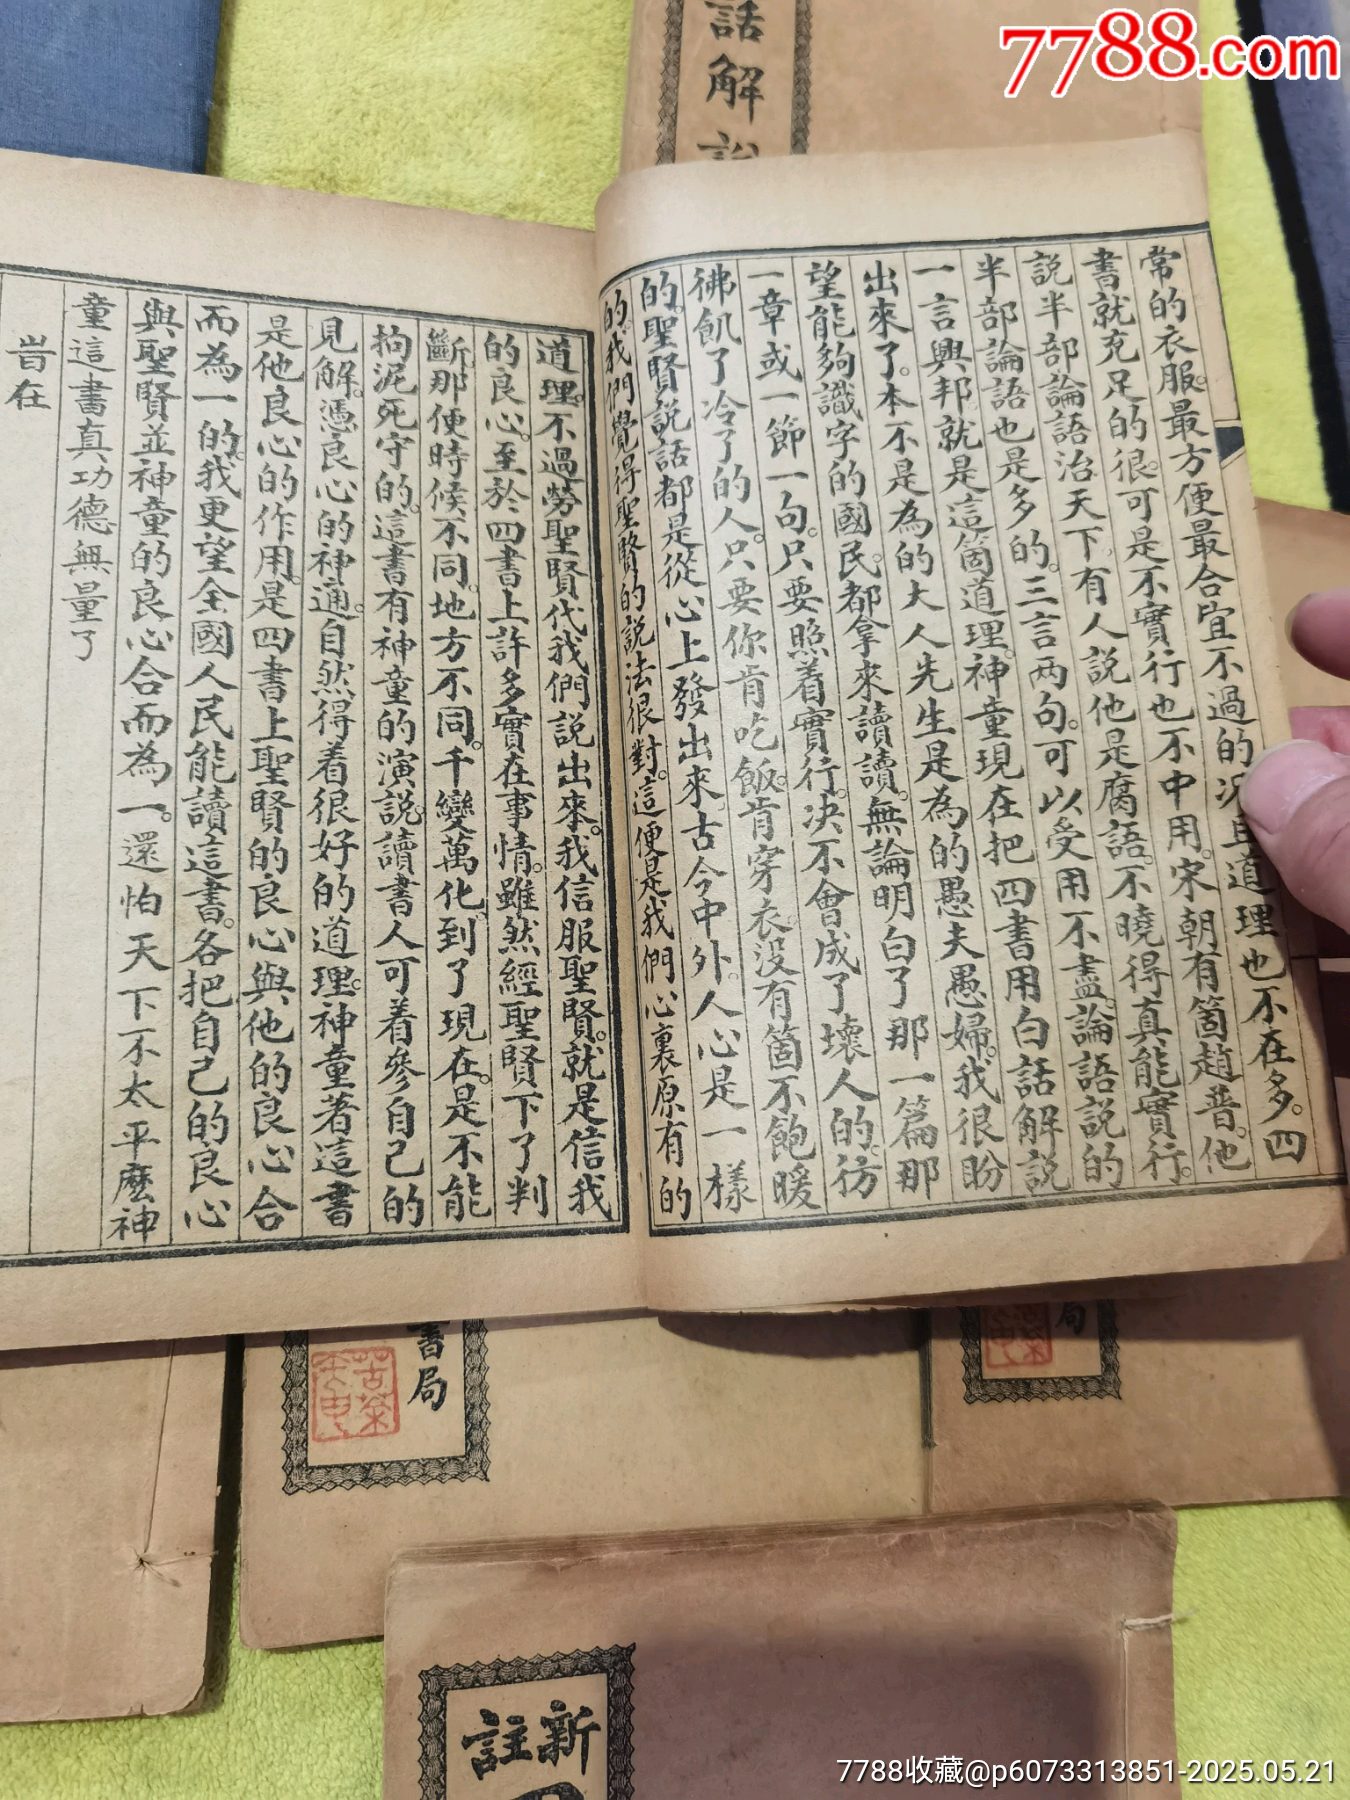 常的衣服。最方便最合宜不過的況且道理也不在多。四
書就充足的很。可是不實行也不中用。宋朝有箇趙普。他
説半部論語治天下。有人説他是腐語。不曉得真能實行。
半部論語也是多的。三言两句。可以受用不盡。論語説的
一言興邦。就是這箇道理。神童現在把四書用白話解説
出來了。本不是為的大人先生是為的愚夫愚婦。我很盼
望能夠識字的國民。都拿來讀讀。無論明白了那一篇那
一章或一節一句。只要照着實行。決不會成了壞人的。彷
彿飢了冷了的人。只要你肯吃飯。肯穿衣。没有箇不飽暖
的。聖賢説話都是從心上發出來。古今中外。人心是一樣
的。我們覺得聖賢的説法很對。這便是我們心裏原有的
道理。不過勞聖賢代我們説出來。我信服聖賢。就是信我
的良心。至於四書上許多實在事情。雖然經聖賢下了判
斷。那便時候不同。地方不同。千變萬化。到了現在。是不能
拘泥死守的。這書有神童的演説。讀書人可着參自己的
見解。憑良心的神通。自然得着很好的道理。神童著這書
是他良心的作用。是四書上聖賢的良心與他的良心合
而為一的。我更望全國人民能讀這書。各把自己的良心
與聖賢並神童的良心合而為一。還怕天下不太平麽神
童這書真功德無量了
旹在
話解説
書局
局
新
註
7788.com
7788收藏@p6073313851-2025.05.21